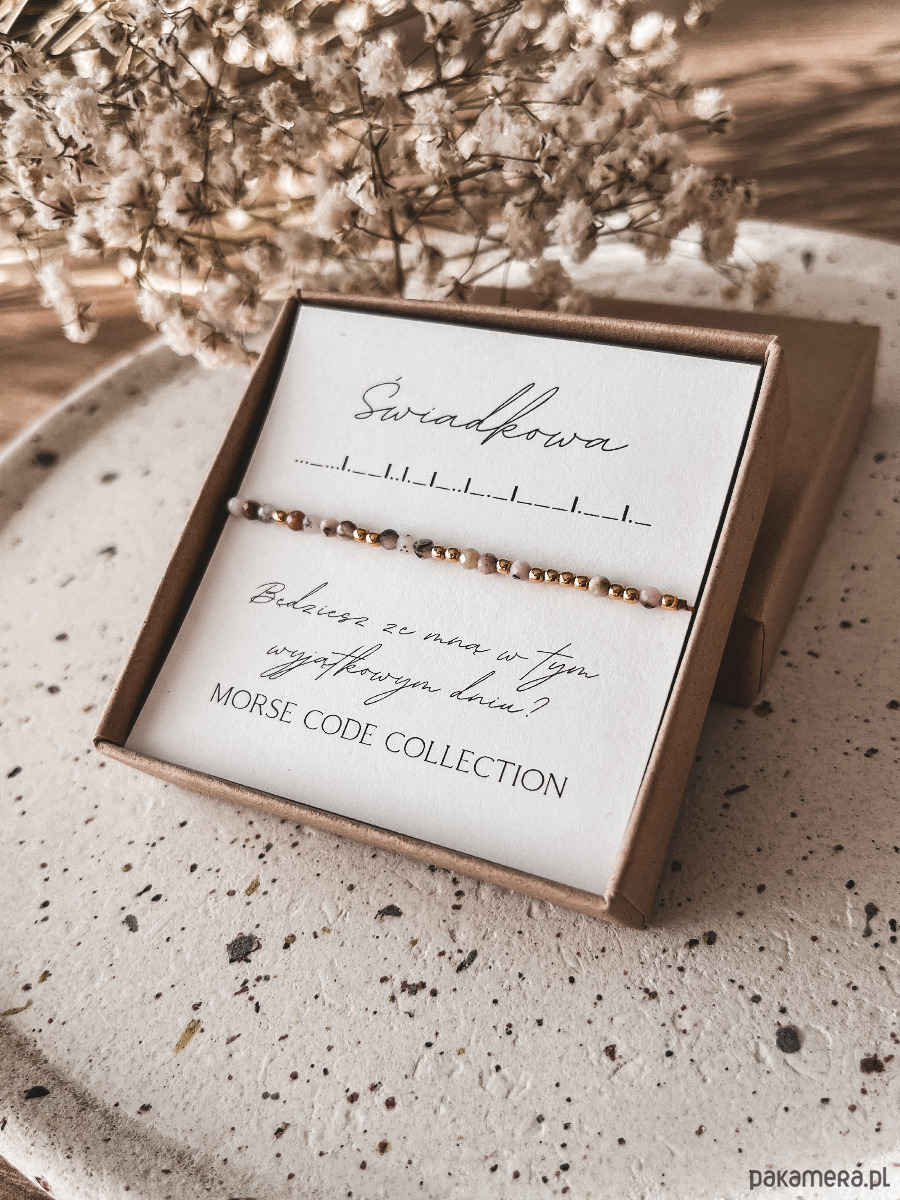 Świadkowa
..._...|.__|..|._|_..|_._|.__|___|.__|._
Będziesz ze mną w tym
wyjątkowym dniu?
MORSE CODE COLLECTION
pakamera.pl